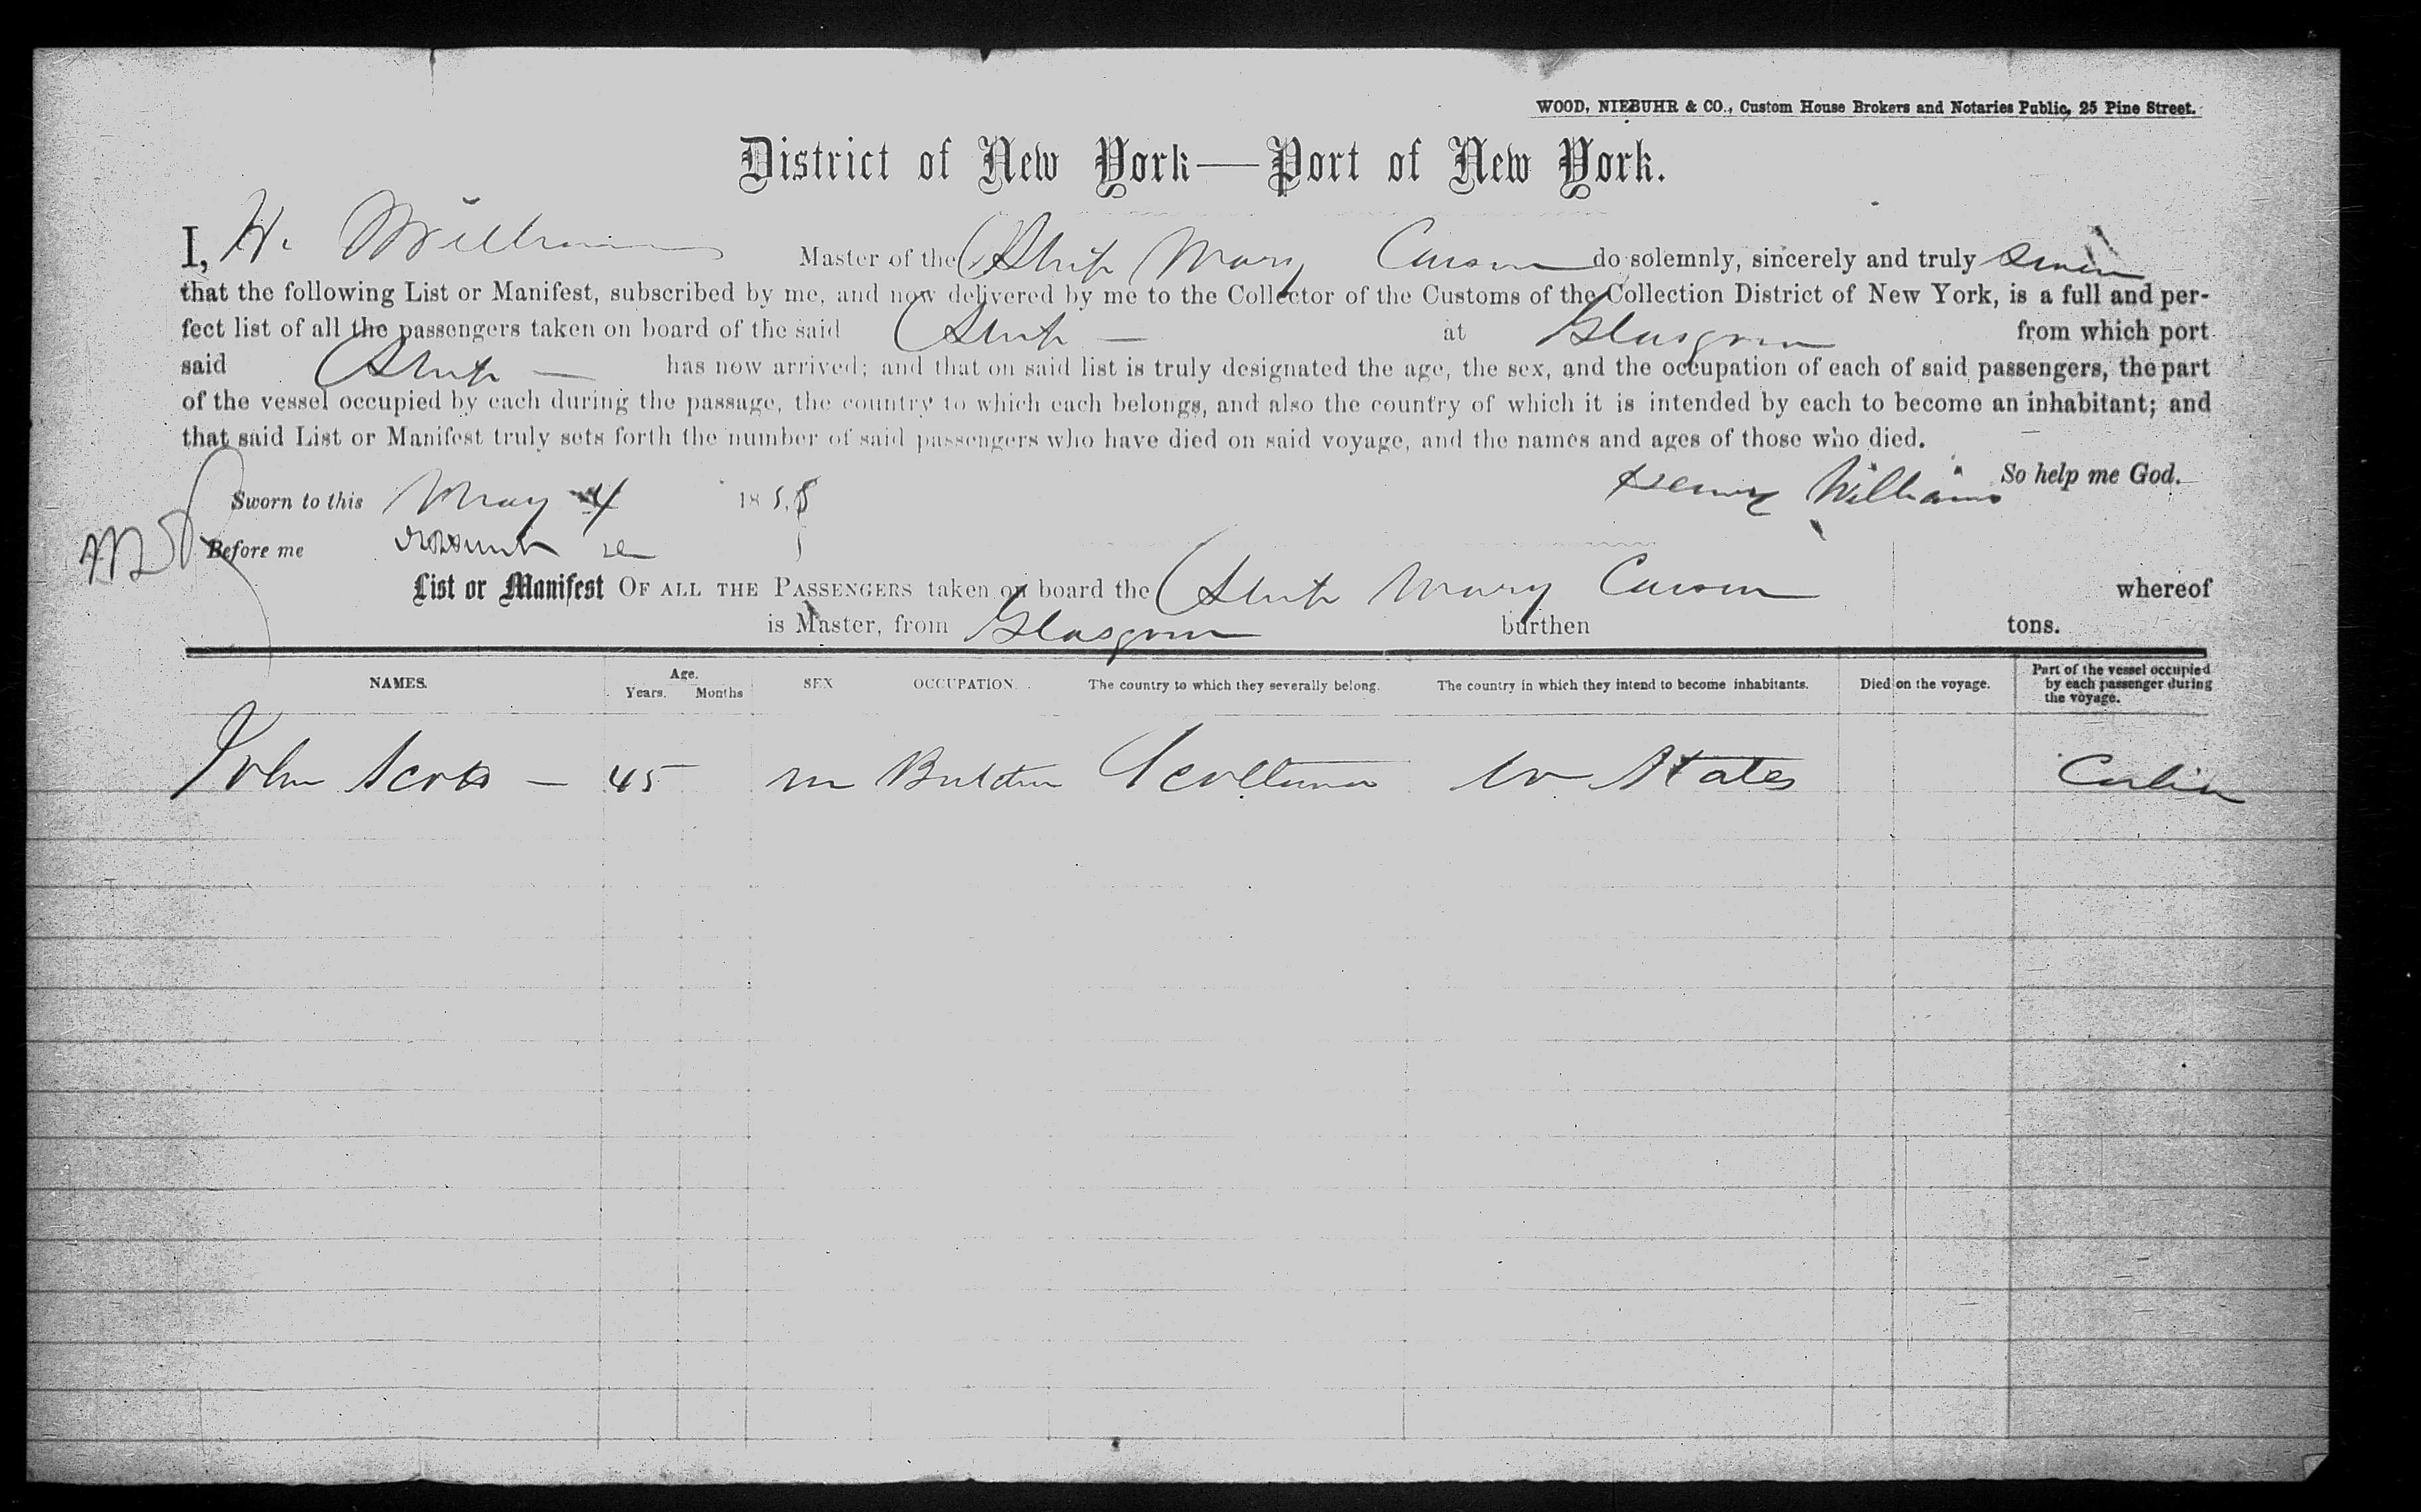 WOOD, NIEBUHR & CO., Custom House Brokers and Notaries Public, 25 Pine Street.
District of New York—Port of New York.
I, H. Williams Master of the Ship Mary Carson do solemnly, sincerely and truly swear
that the following List or Manifest, subscribed by me, and now delivered by me to the Collector of the Customs of the Collection District of New York, is a full and per-
fect list of all the passengers taken on board of the said Ship — at Glasgow from which port
said Ship — has now arrived; and that on said list is truly designated the age, the sex, and the occupation of each of said passengers, the part
of the vessel occupied by each during the passage, the country to which each belongs, and also the country of which it is intended by each to become an inhabitant; and
that said List or Manifest truly sets forth the number of said passengers who have died on said voyage, and the names and ages of those who died.
So help me God.
Sworn to this May 4 1858 Henry Williams
Before me
List or Manifest OF ALL THE PASSENGERS taken on board the Ship Mary Carson whereof
is Master, from Glasgow burthen tons.
NAMES. Age. Years. Months SEX OCCUPATION. The country to which they severally belong. The country in which they intend to become inhabitants. Died on the voyage. Part of the vessel occupied by each passenger during the voyage.
John Scott — 45 m Scotland U States Cabin